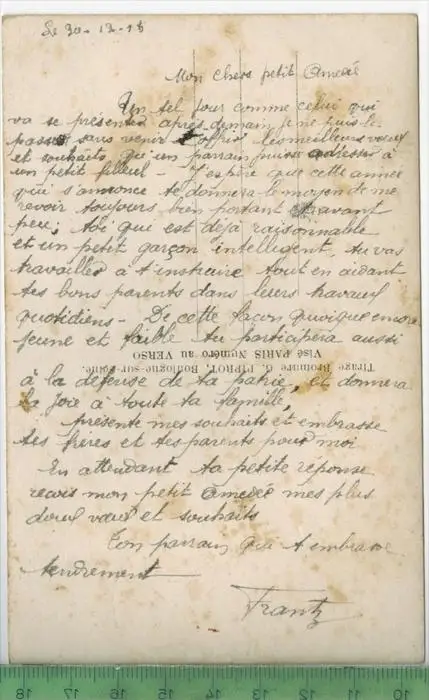 Le 30-12-15
Mon chers petit Amedé
Un tel jour comme celui qui
va se présenter après-demain je ne puis le
passer sans venir t'offrir les meilleurs vœux
et souhaits qu'un parrain puisse adresser à
un petit filleul - J'espère que cette année
qui s'annonce te donnera le moyen de me
revoir toujours bien portant avant
peu; toi qui est déjà raisonnable
et un petit garçon intelligent, tu vas
travailler à t'instruire tout en aidant
tes bons parents dans leurs travaux
quotidiens - De cette façon quoique encore
jeune et faible tu participera aussi
Tirage Bromure G. PIPROT, Boulogne-sur-Seine.
Visé PARIS Numéro au VERSO
à la défense de ta patrie, et donnera
la joie à toute ta famille,
présente mes souhaits et embrasse
tes frères et tes parents pour moi
En attendant ta petite réponse
reçois mon petit Amedée mes plus
doux vœux et souhaits
Ton parrain qui t'embrasse
tendrement
Frantz
18 17 16 15 14 13 12 11 10